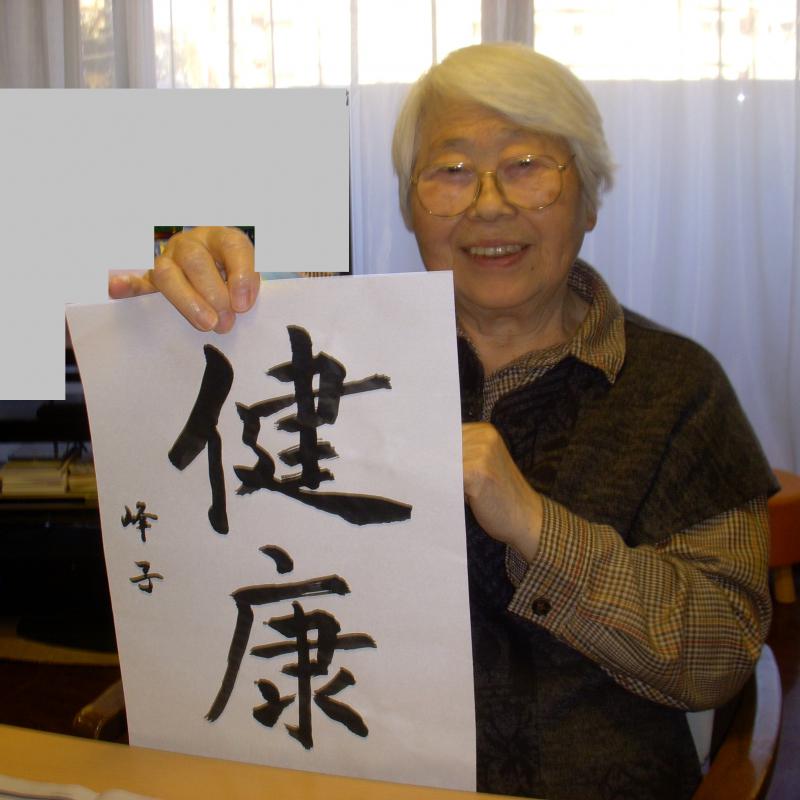 健康
峰子